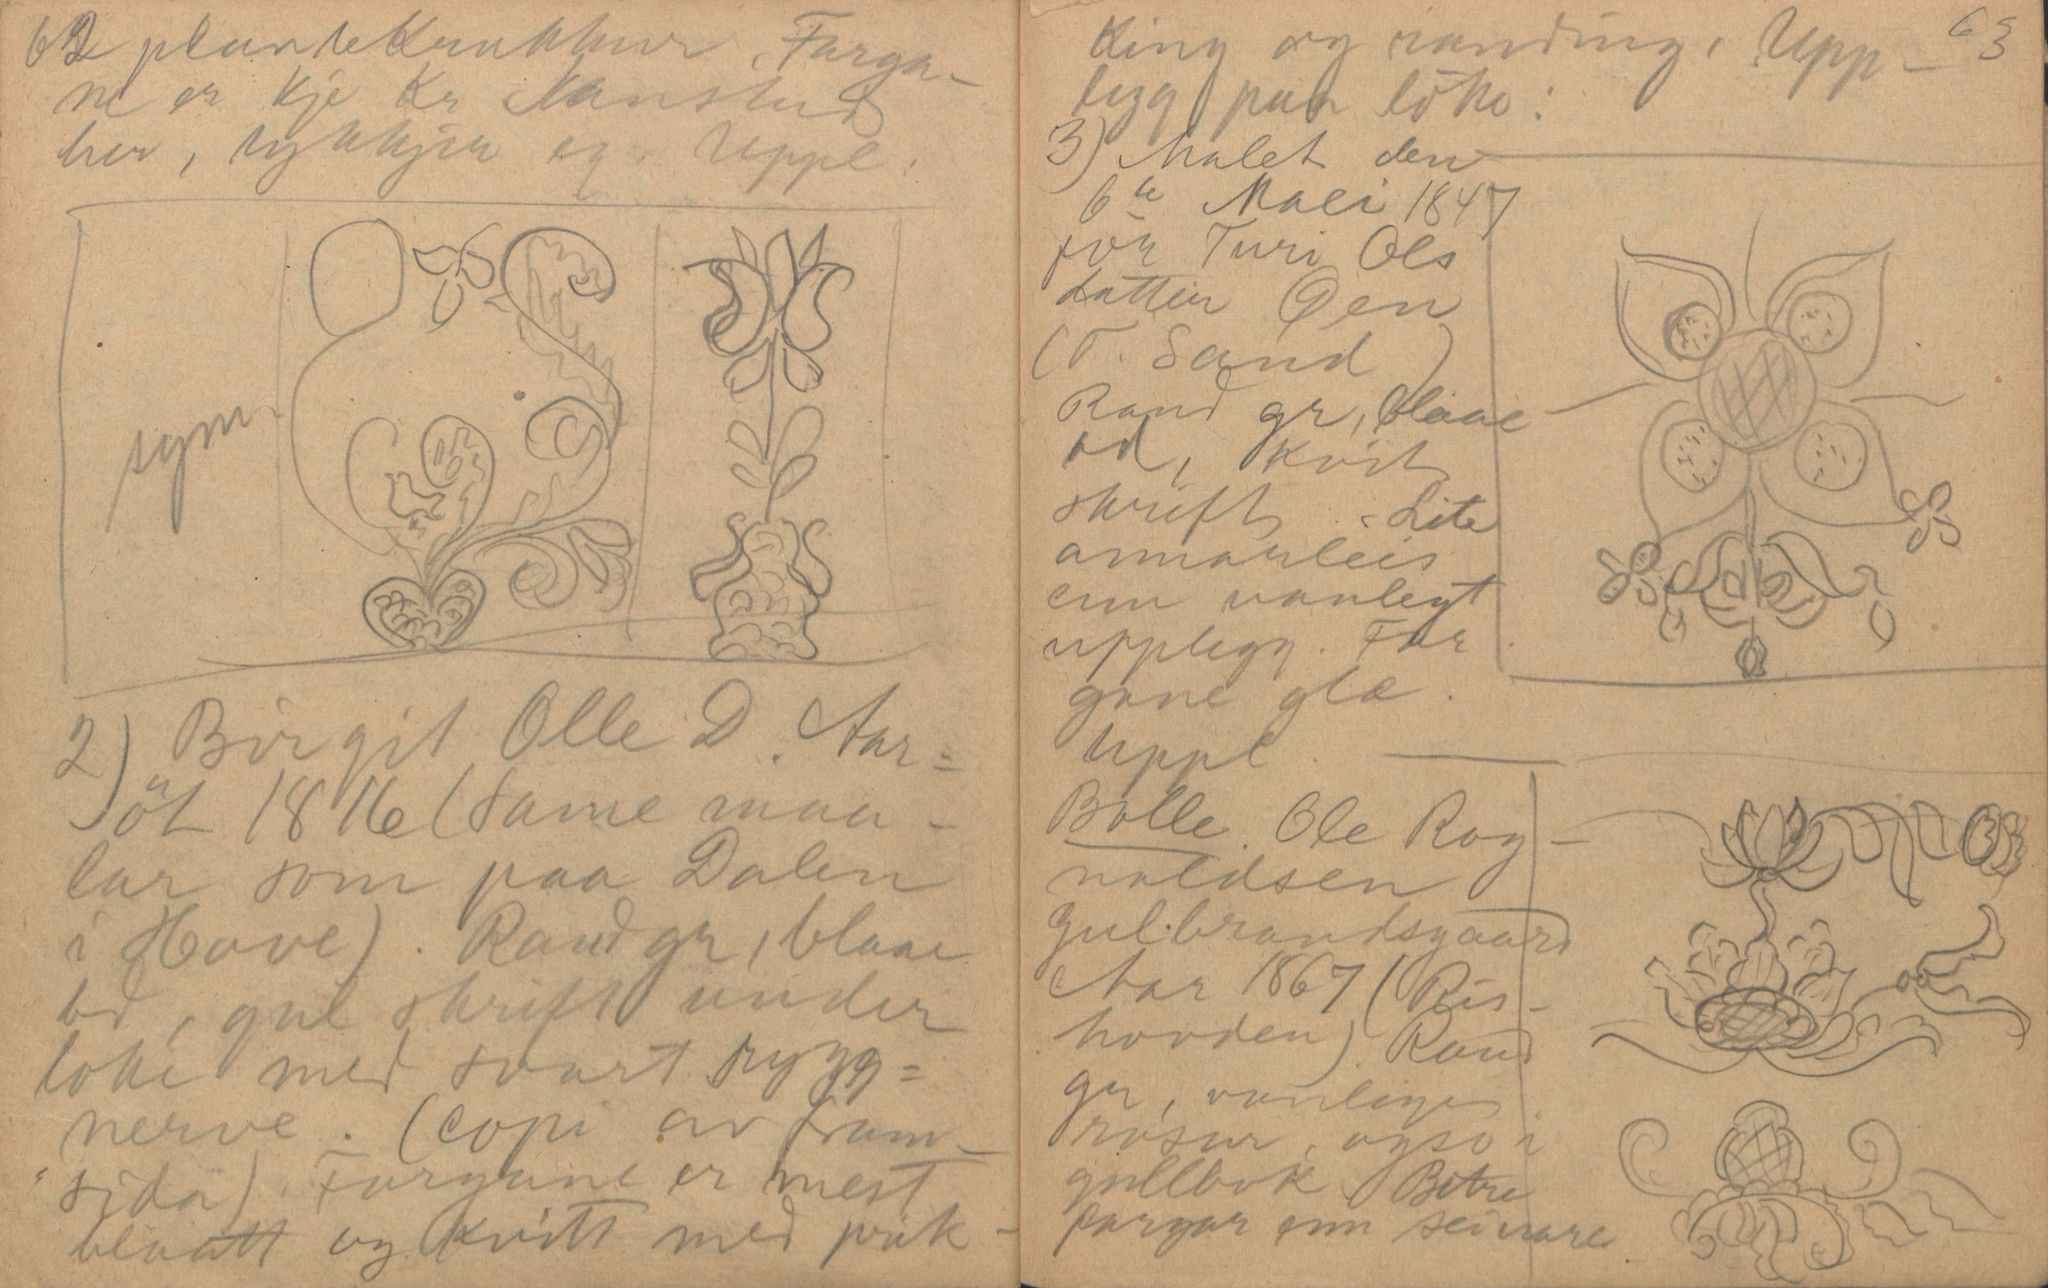 62 plantekrukkur. Farga-
ne er
her, tykkjer eg. Uppl.
sym.
2) Birgit Olle D. Aar=
öt 1816 (Same maa-
lar som paa Dalen
i Hove). Rand gr, blaae
bd, gul skrift under
loke med svart rygg=
nerve. (Copi av fram-
sida). Fargane er mest
blaatt og kvitt med prik-
63
king og randing. Upp-
legg paa löke:
3) Malet den
6te Maei 1847
för Turi Ols
datter Öen
(T. Sand)
Rand gr, blaae
bd, kvit
skrift. Lite
annarleis
enn vanlegt
upplegg. Far
gane gla.
Uppl.
Bolle. Ole Rog-
naldsen
Gulbrandsgaard
Aar 1867 (Ris-
hovden). Rand
gr, vanlege
rosur, ogso i
gullbok. Betre
fargar enn seinare.